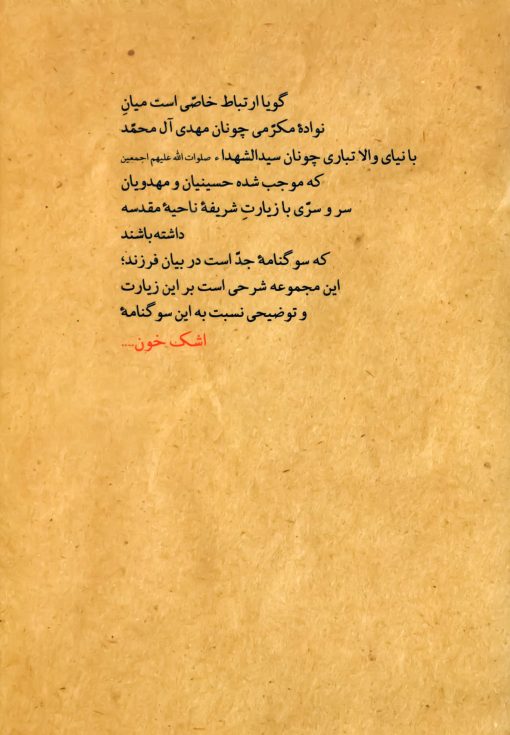 گویا ارتباط خاصّی است میانِ
نوادهٔ مکرّمی چونان مهدی آل محمّد
با نیای والا تباری چونان سیدالشهداء صلوات الله علیهم اجمعین
که موجب شده حسینیان و مهدویان
سر و سرّی با زیارتِ شریفهٔ ناحیهٔ مقدسه
داشته باشند
که سوگنامهٔ جدّ است در بیان فرزند؛
این مجموعه شرحی است بر این زیارت
و توضیحی نسبت به این سوگنامهٔ
اشک خون....